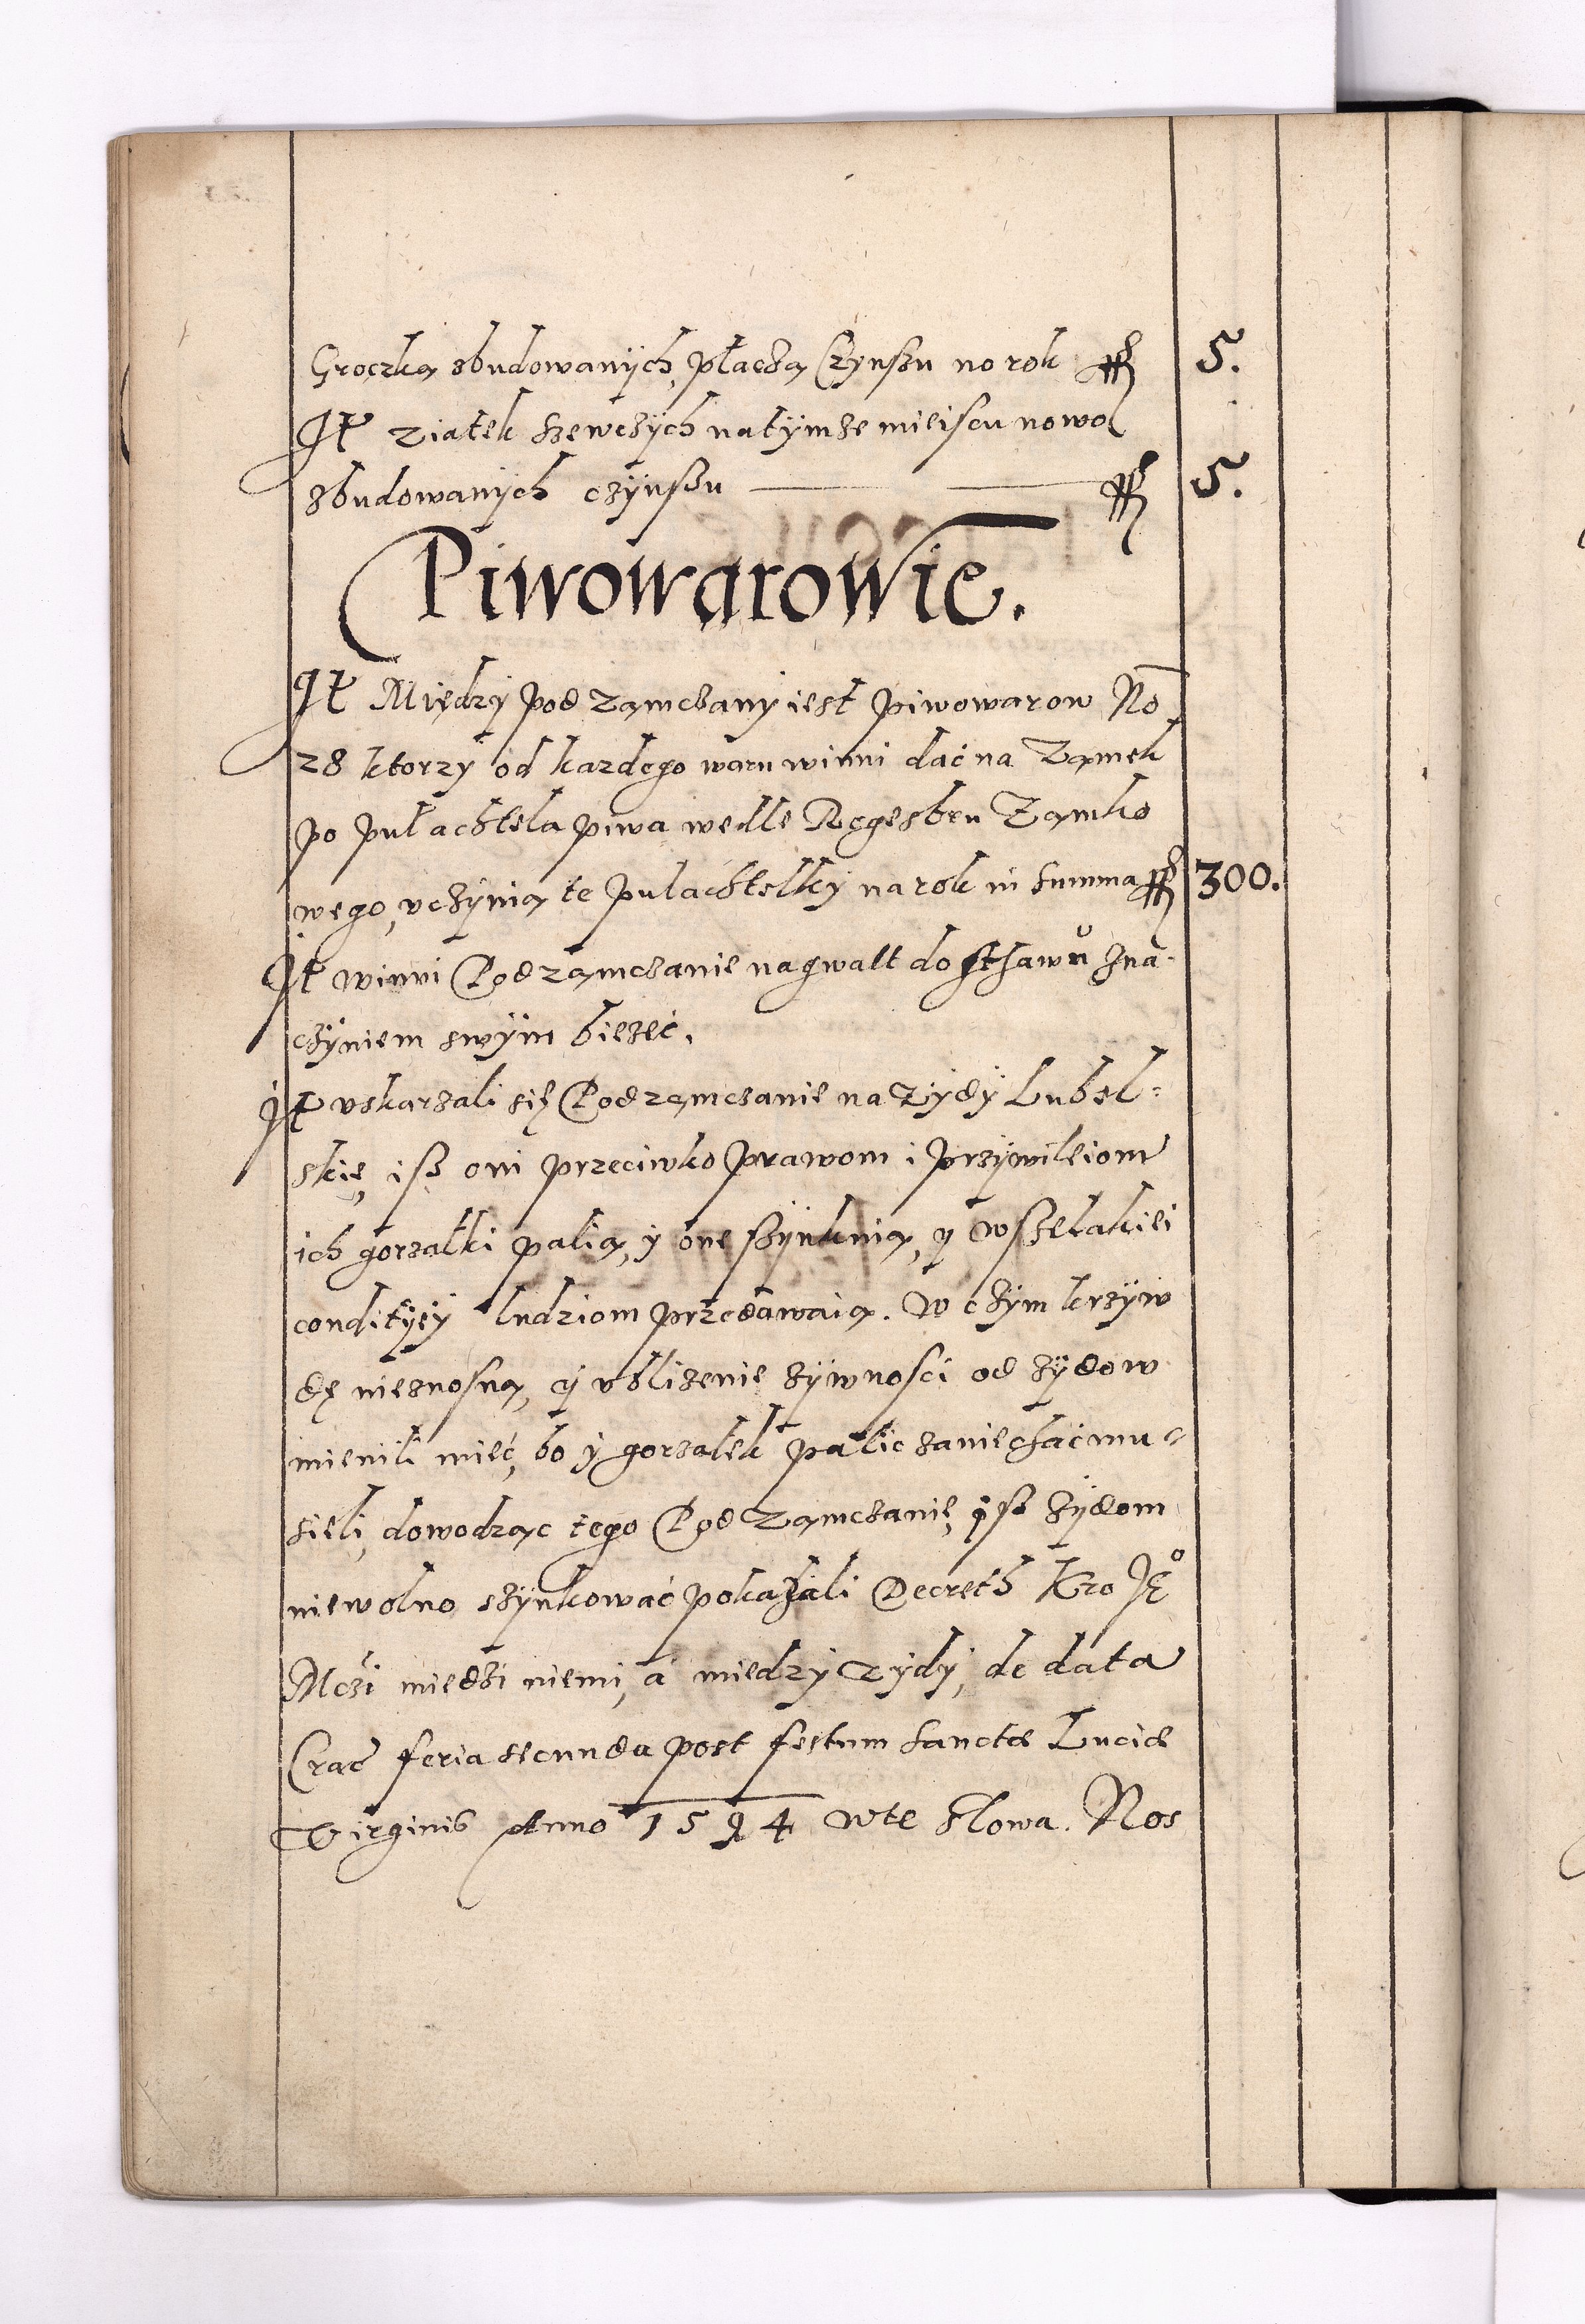 Groczką zbudowanych, płaczą Czynszu na rok ff 5.
It ziatek szewczych na tymze mieiscu nowo
zbudowanych czynszu ff 5.
Piwowarowie.
It Między pod zamczany iest piwowarow No
28 ktorzy od kazdego waru winni dać na Zamek
po puł achtela piwa wedle Regestru Zamko
wego, uczynią te pulachtelky na rok in summa ff 300.
It winni Podzamczanie nagwalt do sthawu zna-
czyniem swym biezeć.
It uskarzali się Podzamczanie na Zydy Lubel-
skie, isz oni przeciwko prawom i przywileiom
ich gorzałki palią, y one szynkuią, y wszelakiei
conditycy ludziom przedawaią. W czym krzyw
dę nieznosną, y ublizenie zywnosci od zydow
mienili mieć, bo y gorzałek palic zaniechać mu-
sieli, dowodząc tego Podzamczanie, isz zydom
niewolno szynkować pokazali Decreth Kro Je°
Mczi miedzi niemi, á miedzy zydy, de data
Crac feria secunda post festum sanctæ Luciæ
Virginis Anno 1594 wte słowa. Nos